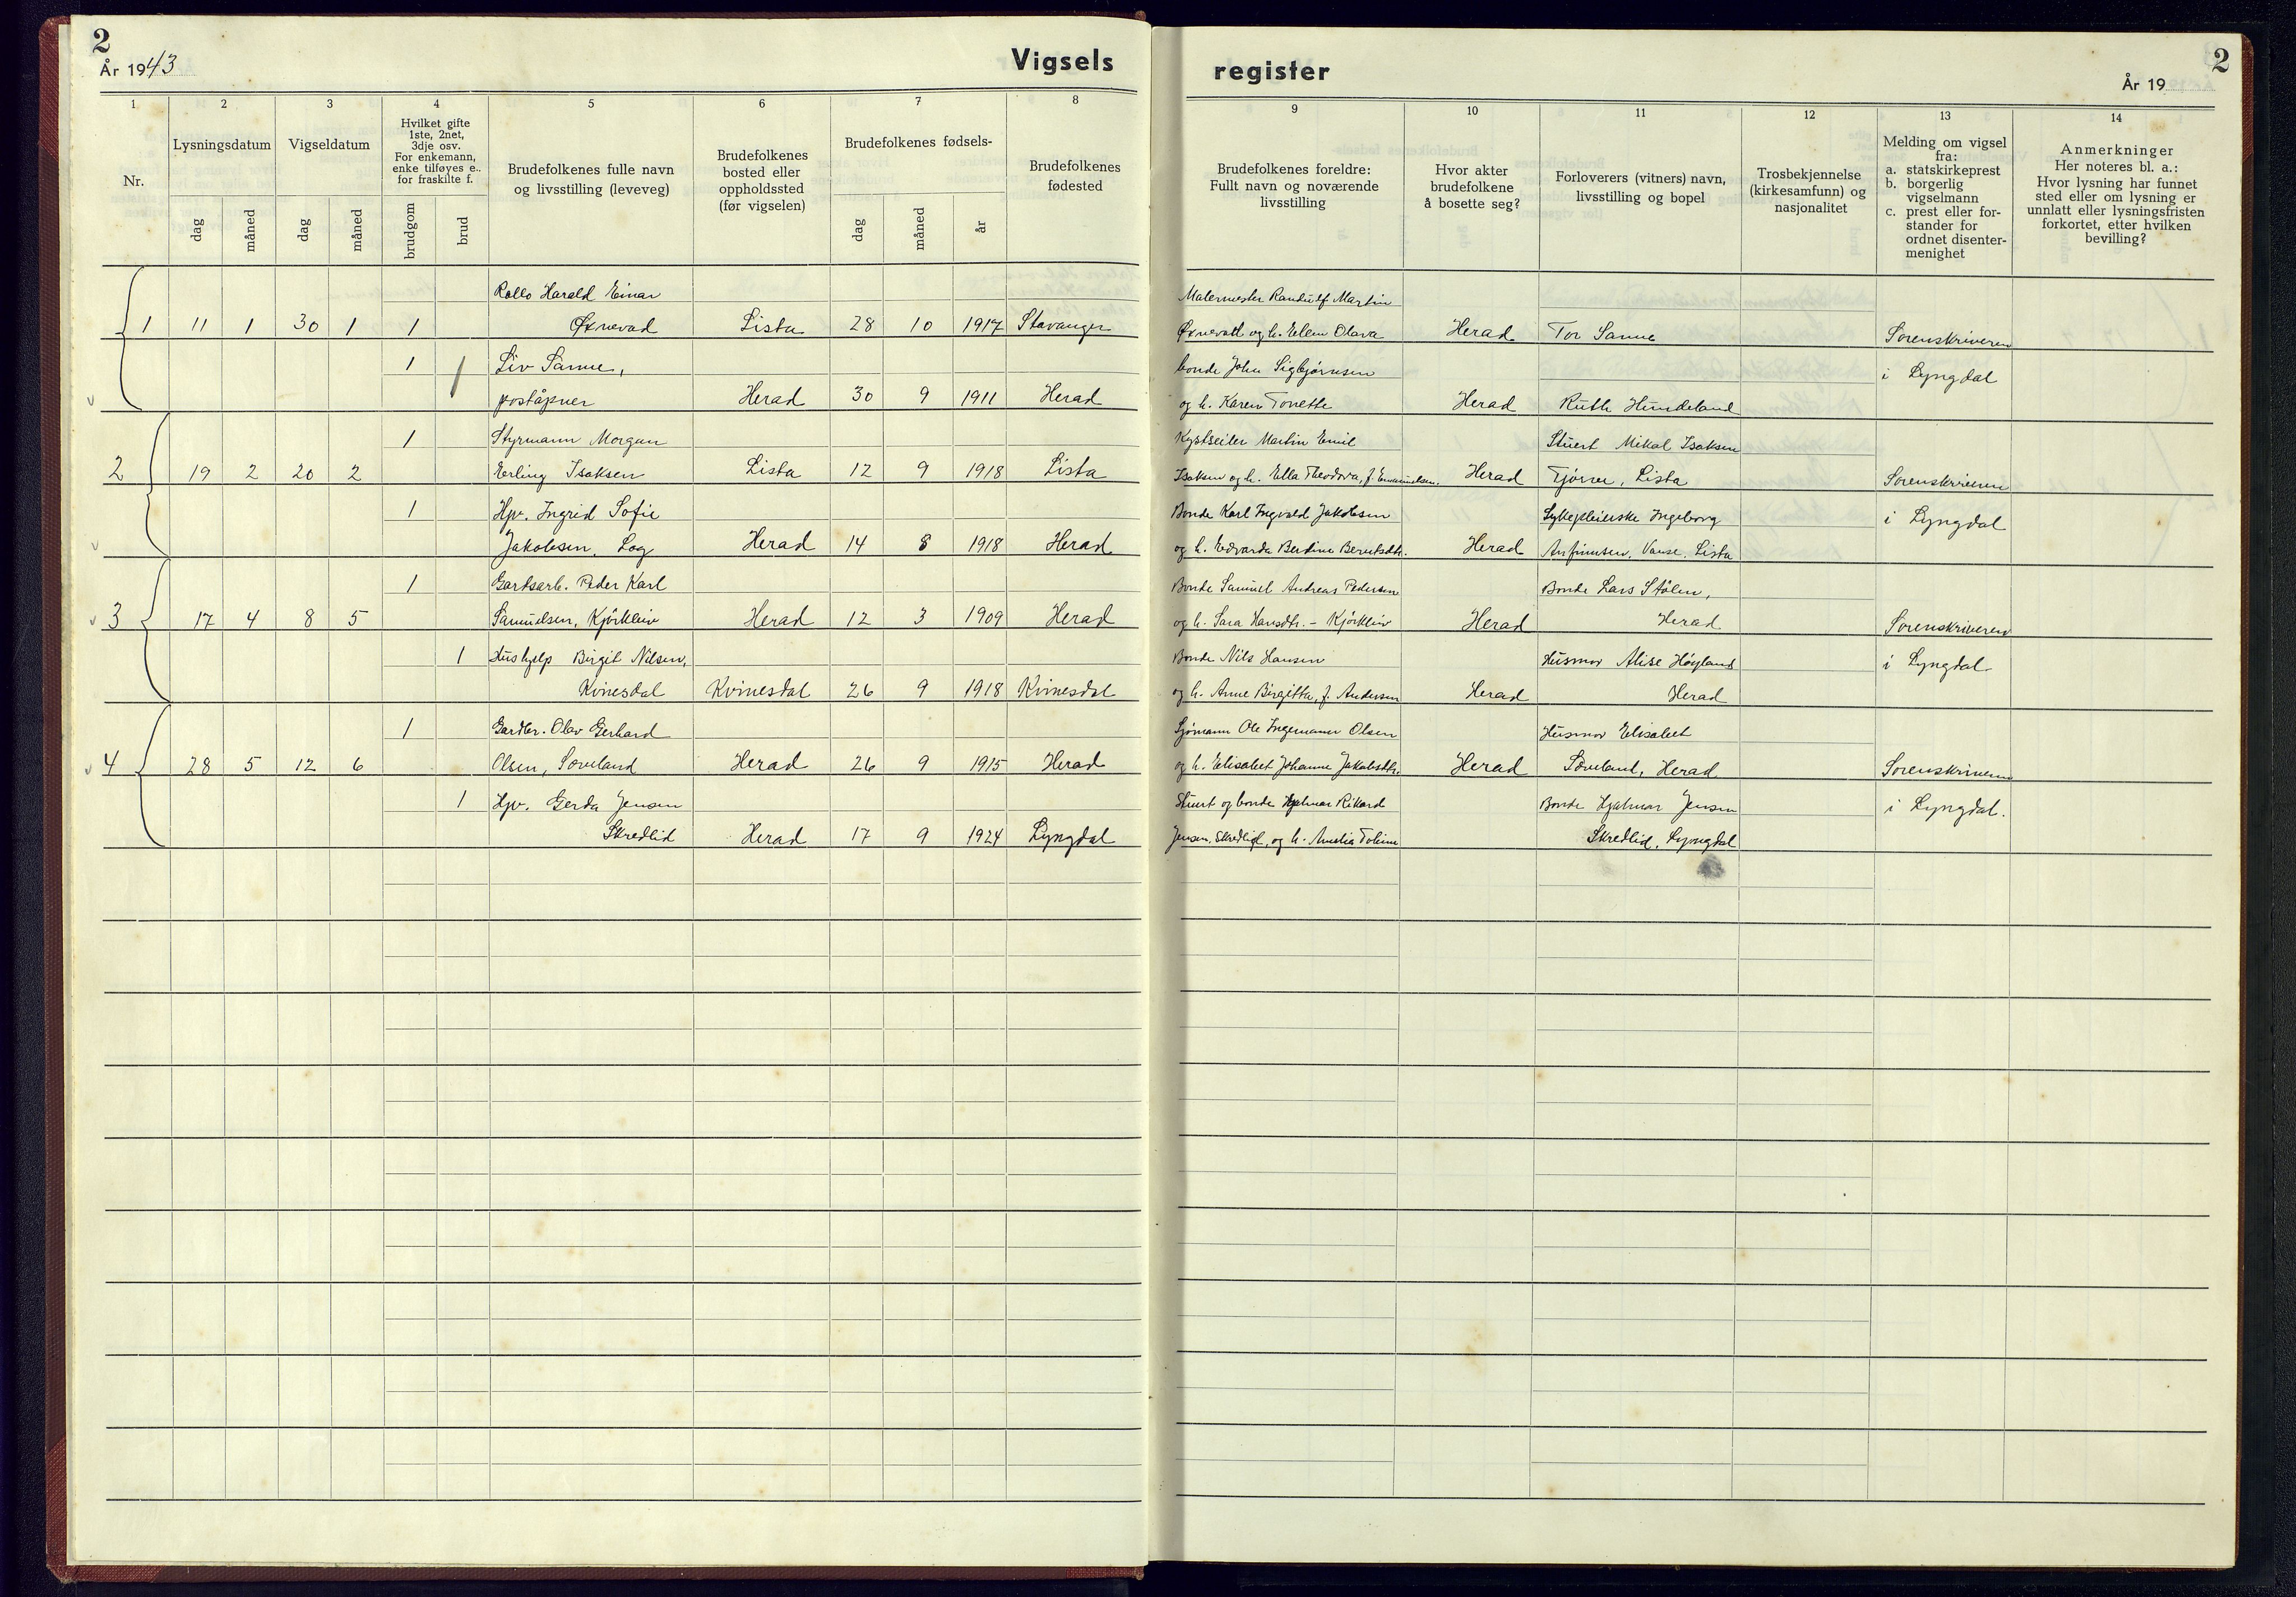 2
År 1943
Vigsels
register
2
År 19
1
2
3
4
5
6
7
8
9
10
11
12
13
14
Nr.
Lysningsdatum
dag
måned
Vigseldatum
dag
måned
Hvilket gifte
1ste, 2net,
3dje osv.
For enkemann,
enke tilføyes e..
for fraskilte f.
brudgom
brud
Brudefolkenes fulle navn
og livsstilling (leveveg)
Brudefolkenes
bosted eller
oppholdssted
(før vigselen)
Brudefolkenes fødsels-
dag
måned
år
Brudefolkenes
fødested
Brudefolkenes foreldre:
Fullt navn og noværende
livsstilling
Hvor akter
brudefolkene
å bosette seg?
Forloverers (vitners) navn,
livsstilling og bopel
Trosbekjennelse
(kirkesamfunn) og
nasjonalitet
Melding om vigsel
fra:
a. statskirkeprest
b. borgerlig
vigselmann
c. prest eller for-
stander for
ordnet disenter-
menighet
Anmerkninger
Her noteres bl. a.:
Hvor lysning har funnet
sted eller om lysning er
unnlatt eller lysningsfristen
forkortet, etter hvilken
bevilling?
Rollo Harald Einar
Malermester Randulf Martin
1 11 1 30 1 1 Øxnevad Lista 28 10 1917 Stavanger
Øxnevad og h. Ellen Olava Herad Tor Sanne Sorenskriveren
1 Liv Sanne,
bonde John Sigbjørnsen i Lyngdal
poståpner Herad 30 9 1911 Herad
og h. Karen Tonette Herad Ruth Hundeland
1 Styrmann Morgan
Kystseiler Martin Emil Stuert Mikal Isaksen
2 19 2 20 2 Erling Isaksen Lista 12 9 1918 Lista
Isaksen og h. Ella Theodora, f. Emanuelsen. Herad Tjørve, Lista Sorenskriveren
1 Hpv. Ingrid Sofie
Bonde Karl Ingvald Jakobsen Sykepleierske Ingeborg i Lyngdal
Jakobsen, Log Herad 14 8 1918 Herad
og h. Edvarda Berdine Berntsdtr. Herad Anfinnsen, Vanse, Lista
1 Gardsarb. Peder Karl
Bonde Samuel Andreas Pedersen Bonde Lars Stølen,
3 17 4 8 5 Samuelsen, Kjørkleiv Herad 12 3 1909 Herad
og h. Sara Hansdtr. - Kjørkleiv Herad Herad Sorenskriveren
1 Hushjelp Birgit Nilsen,
Bonde Nils Hansen Husmor Alise Høyland i Lyngdal
Kvinesdal Kvinesdal 26 9 1918 Kvinesdal
og h. Anne Birgitta, f. Andersen Herad Herad
1 Gardbr. Olav Gerhard
Sjømann Ole Ingemann Olsen Husmor Elisabet
4 28 5 12 6 Olsen, Sæveland Herad 26 9 1915 Herad
og h. Elisabet Johanne Jakobsdtr. Herad Sæveland, Herad Sorenskriveren
1 Hpv. Gerda Jensen
Stuert og bonde Hjalmar Rikard Bonde Hjalmar Jensen i Lyngdal.
Skredlid Herad 17 9 1924 Lyngdal
Jensen, Skredlid, og h. Amelia Toline Skredlid, Lyngdal